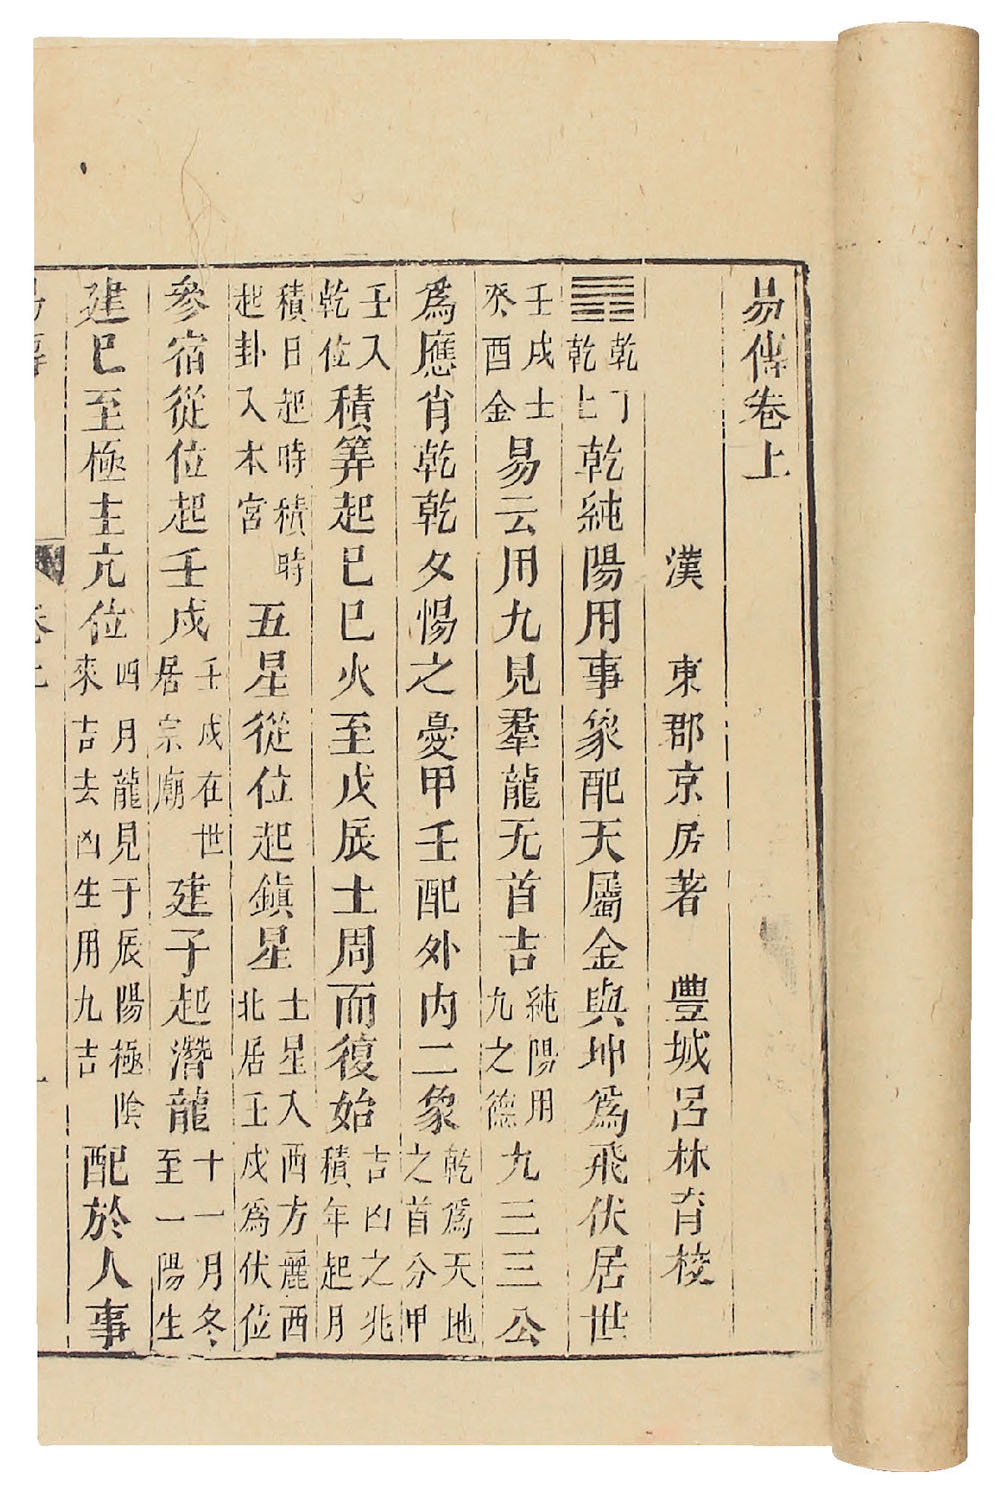 易傳卷上
漢 東郡京房著 豐城呂林育校
䷀乾下乾上乾純陽用事象配天屬金與坤爲飛伏居世
壬戌土癸酉金易云用九見羣龍无首吉純陽用九之德九三三公
爲應肖乾乾夕惕之憂甲壬配外内二象乾爲天地之首分甲
壬入乾位積筭起巳巳火至戊辰土周而復始吉凶之兆積年起月
積日起時積時起卦入本宮五星從位起鎮星土星入西方麗西北居壬戌爲伏位
參宿從位起壬戌壬戌在世居宗廟建子起潛龍十一月冬至一陽生
建巳至極主亢位四月龍見于辰陽極陰來吉去凶生用九吉配於人事
易傳 卷上 一